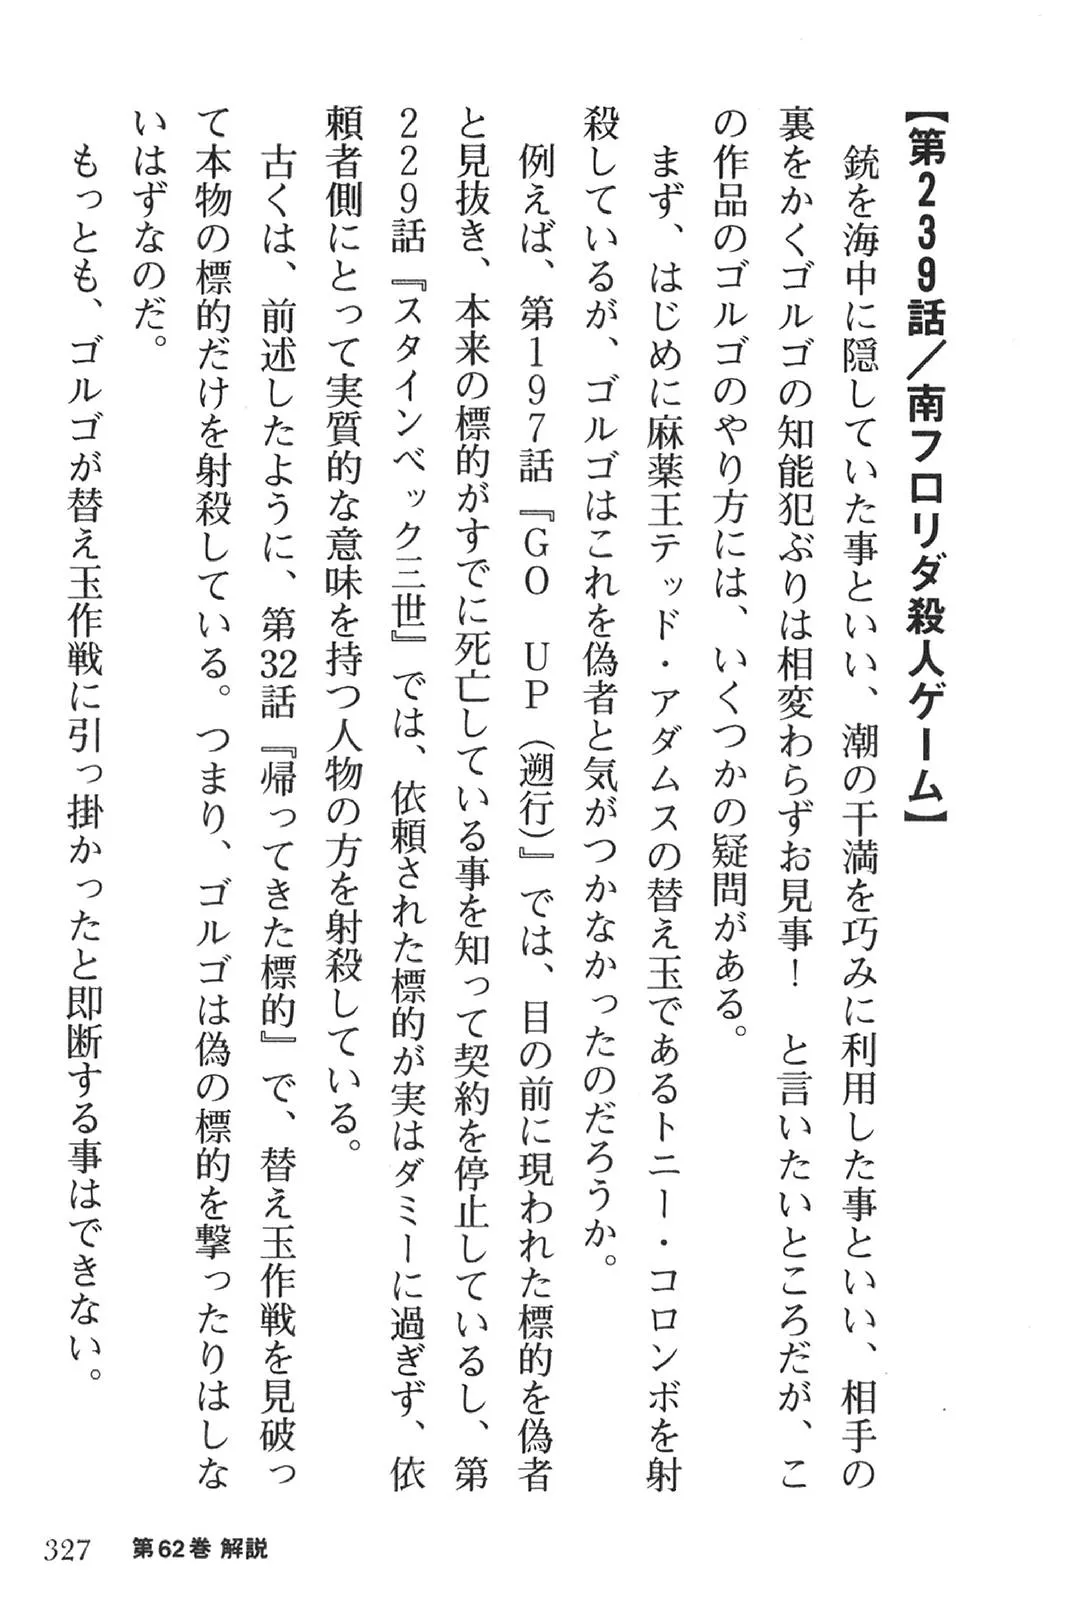 【第239話／南フロリダ殺人ゲーム】
銃を海中に隠していた事といい、潮の干満を巧みに利用した事といい、相手の
裏をかくゴルゴの知能犯ぶりは相変わらずお見事！　と言いたいところだが、こ
の作品のゴルゴのやり方には、いくつかの疑問がある。
まず、はじめに麻薬王テッド・アダムスの替え玉であるトニー・コロンボを射
殺しているが、ゴルゴはこれを偽者と気がつかなかったのだろうか。
例えば、第197話『GO UP（遡行）』では、目の前に現われた標的を偽者
と見抜き、本来の標的がすでに死亡している事を知って契約を停止しているし、第
229話『スタインベック三世』では、依頼された標的が実はダミーに過ぎず、依
頼者側にとって実質的な意味を持つ人物の方を射殺している。
古くは、前述したように、第32話『帰ってきた標的』で、替え玉作戦を見破っ
て本物の標的だけを射殺している。つまり、ゴルゴは偽の標的を撃ったりはしな
いはずなのだ。
もっとも、ゴルゴが替え玉作戦に引っ掛かったと即断する事はできない。
327 第62巻 解説